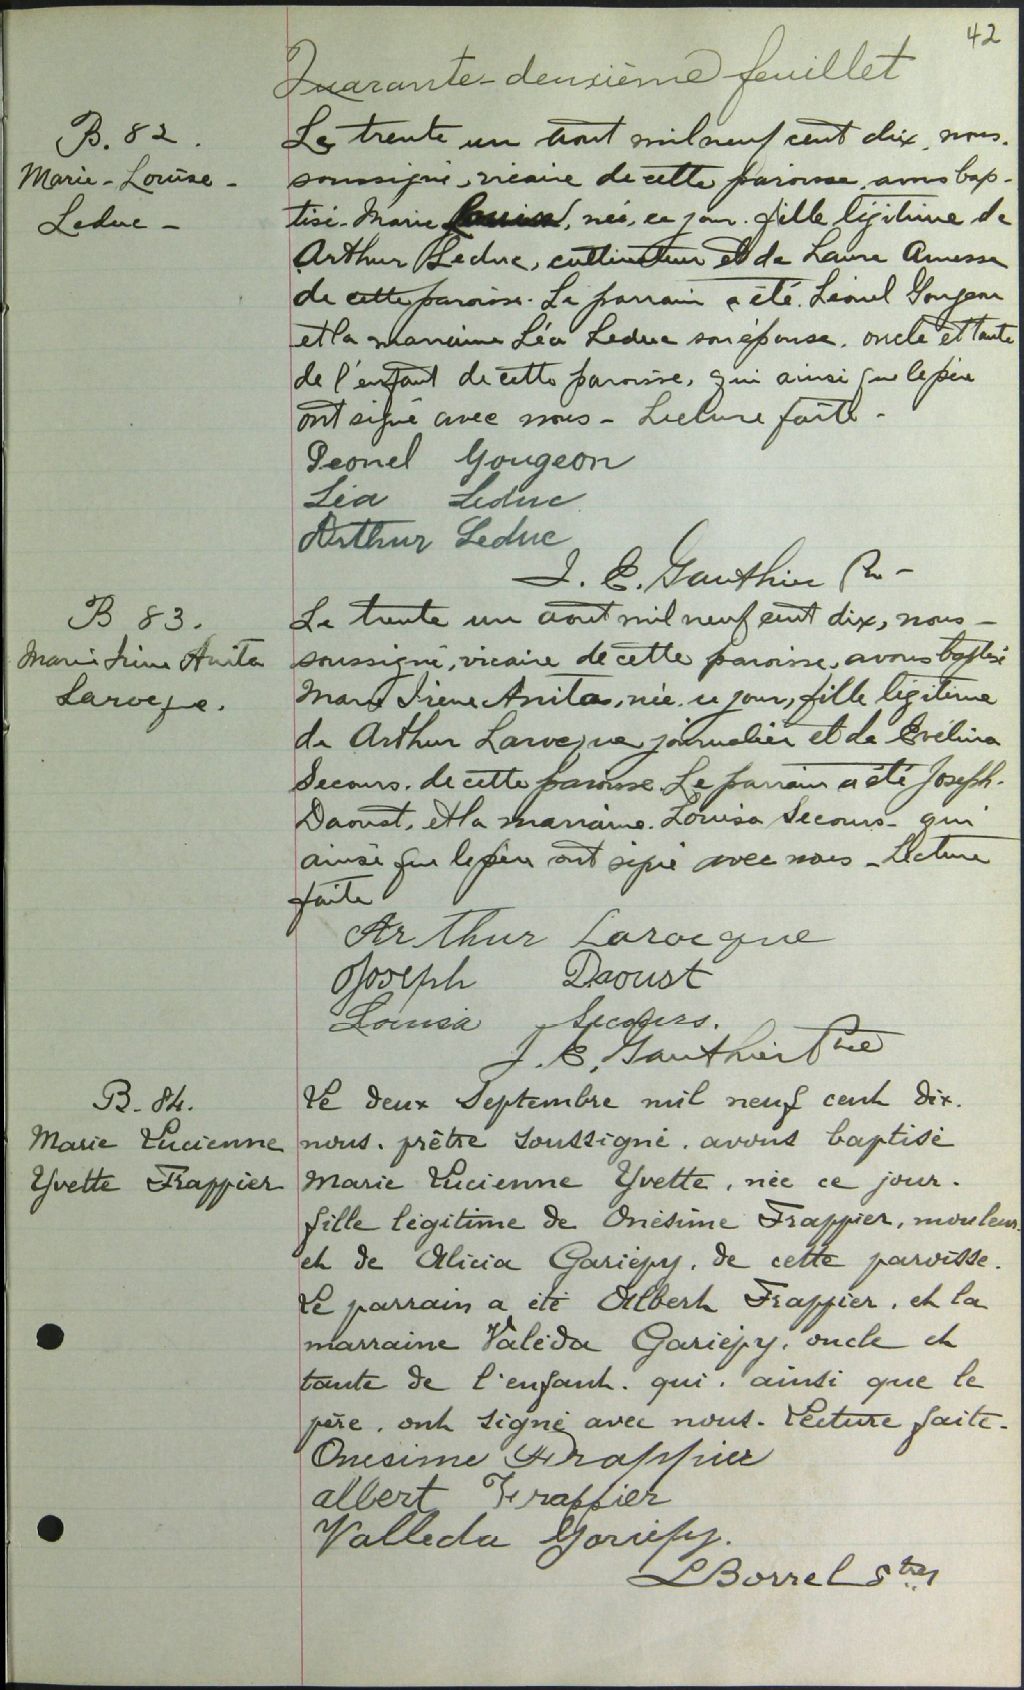 42
Quarante-deuxième feuillet
B. 82.
Marie-Louise-
Leduc-
Le trente un aout mil neuf cent dix, nous.
soussigné, vicaire de cette paroisse, avons bap-
tisé Marie Louise, née, ce jour. fille légitime de
Arthur Leduc, cultivateur et de Laura
de cette paroisse. Le parrain a été Léonel Gougeon
et la marraine Léa Leduc son épouse. oncle et tante
de l'enfant de cette paroisse, qui ainsi que le père
ont signé avec nous - Lecture faite -
Leonel Gougeon
Léa Leduc
Arthur Leduc
J. E. Gauthier Ptre -
B 83.
Marie Irène Anita
Larocque.
Le trente un aout mil neuf cent dix, nous -
soussigné, vicaire de cette paroisse, avons baptisé
Marie Irène Anita, née. ce jour, fille légitime
de Arthur Larocque journalier et de Evélina
Secours. de cette paroisse. Le parrain a été Joseph.
Daoust, et la marraine. Louisa Secours - qui
ainsi que le père ont signé avec nous - Lecture
faite
Arthur Larocque
Joseph Daoust
Louisa Secours.
J. E. Gauthier Ptre
B. 84.
Marie Lucienne
Yvette Frappier
Le deux Septembre mil neuf cent dix.
nous. prêtre soussigné. avons baptisé
Marie Lucienne Yvette, née ce jour.
fille légitime de Onésime Frappier, mouleur
et de Alicia Gariépy, de cette paroisse.
Le parrain a été Albert Frappier, et la
marraine Valéda Gariépy, oncle et
tante de l'enfant. qui. ainsi que le
père, ont signé avec nous. Lecture faite.
Onesime Frappier
albert Frappier
Valleda Gariépy.
L Borrel ptre